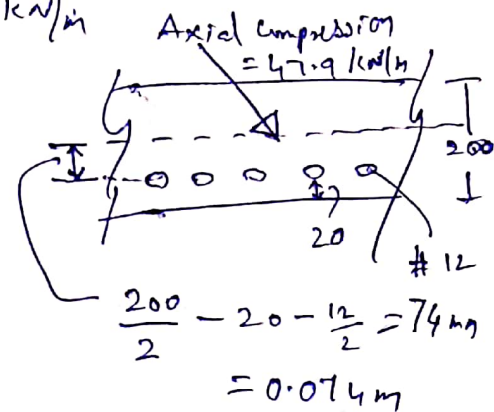 kN/m
Axial compression
= 47.9 kN/m
200
20
# 12
200/2 - 20 - 12/2 = 74 mm
= 0.074 m